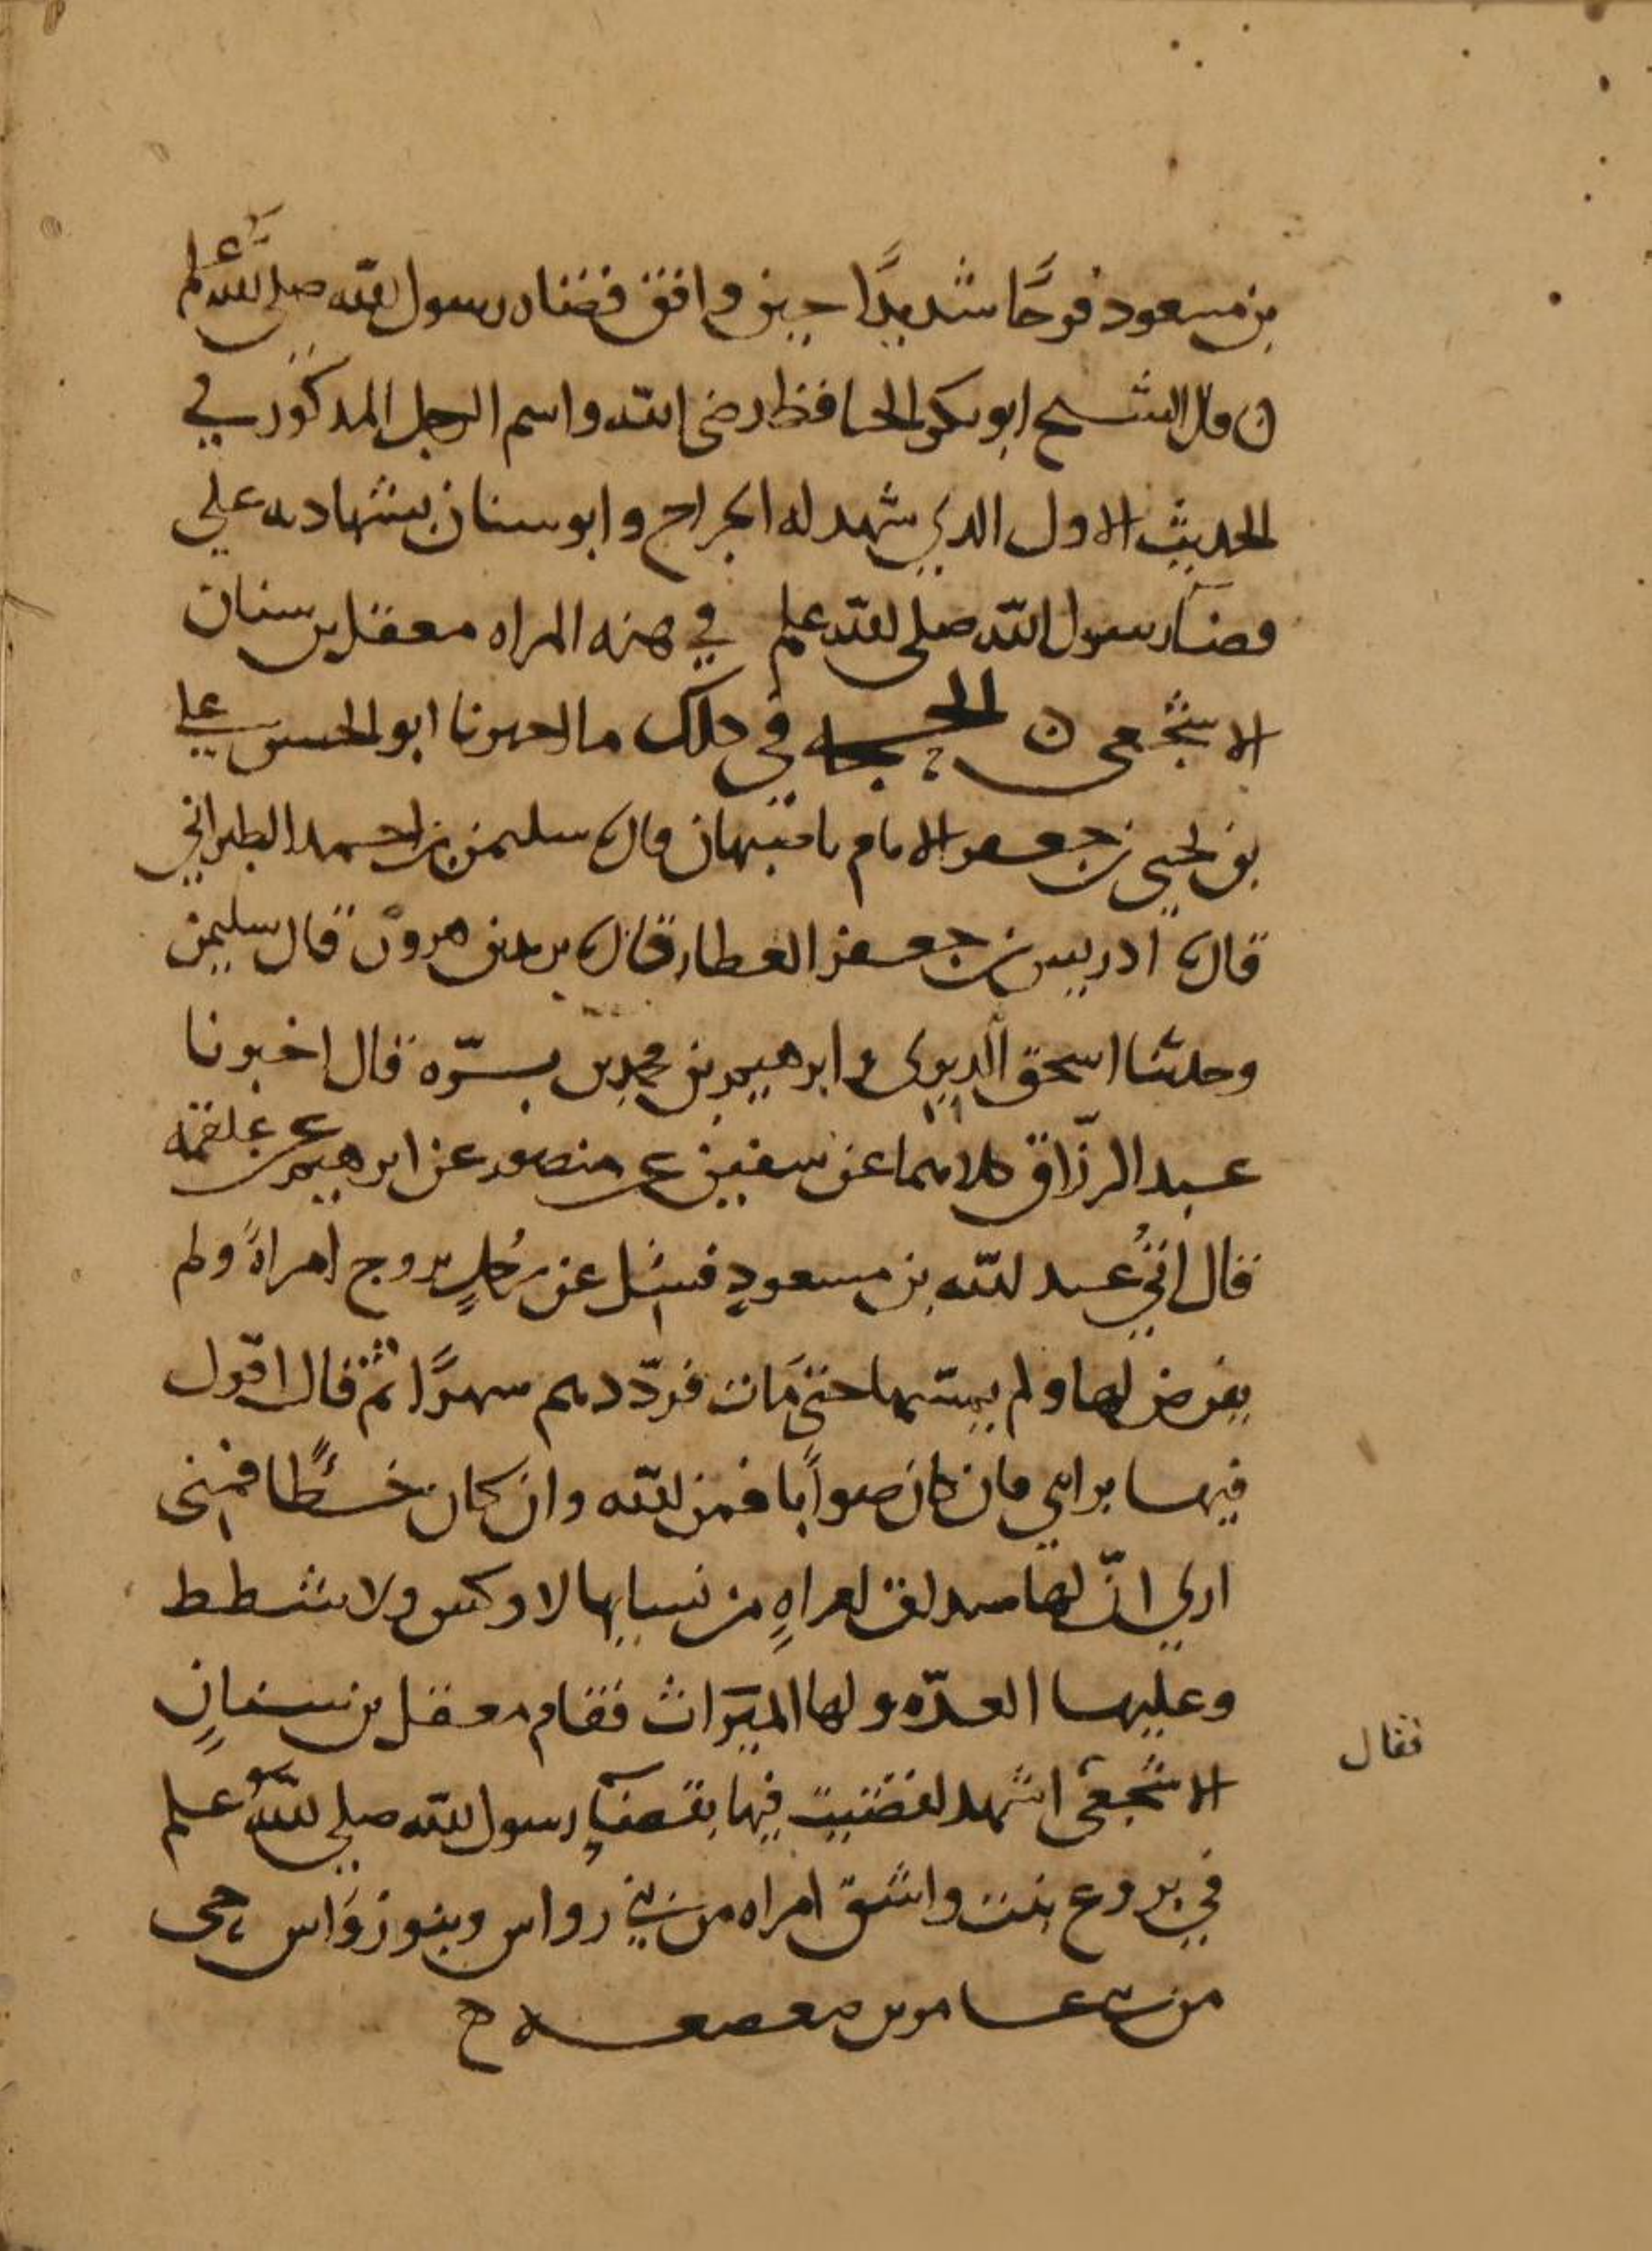 بن مسعود فرحًا شديدًا حين وافق قضاه رسول الله صلى الله علم
ن قال الشيخ ابو بكر الحافظ رضى الله واسم الرجل المذكور في
الحديث الاول الذي شهد له الجراح وابو سنان بشهادته على
قضآ رسول الله صلى الله علم في هذه المراه معقل بن سنان
الاشجعى ن الحجه في ذلك ما اخبرنا ابو الحسن علي
بن يحيى بن جعفر الامام باصبهان قال سليمن بن احمد الطبراني
قال ادريس بن جعفر العطار قال يزيد بن هرون قال سليمن
وحدثنا اسحق الدبري وابرهيم بن محمد بن برّه قال اخبرنا
عبد الرزّاق كلاهما عن سفين عن منصور عن ابرهيم عن علقمه
قال اتي عبد الله بن مسعودٍ فسئل عن رجلٍ تزوج امراةً ولم
يفرض لها ولم يمسّها حتى مَات فردّدهم شهرًا ثم قال اقول
فيها برايي فان كان صوابًا فمن الله وان كان خطأً فمنى
اري انّ لها صداق امراهٍ من نسايها لا وكس ولا شطط
وعليها العدّه ولها الميرَاث فقام معقل بن سنانٍ
الاشجعى اشهد لقضيت فيها بقضآ رسول الله صلى الله علم
فقال
في بروع بنت واشق امراه من بني رواس وبنو رؤَاس حى
من بني عامر بن صعصعه ح